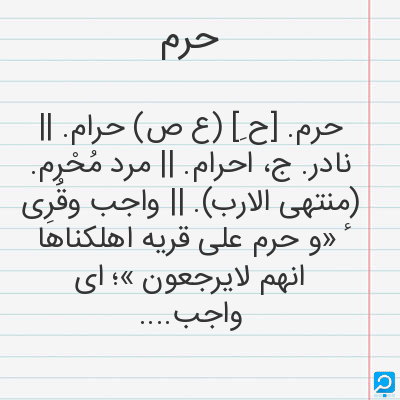 حرم
حرم. [ح ِ] (ع ص) حرام. ||
نادر. ج، احرام. || مرد مُحْرِم.
(منتهی الارب). || واجب وقُرِی
ٔ «و حرم علی قریه اهلکناها
انهم لایرجعون »؛ ای
واجب....